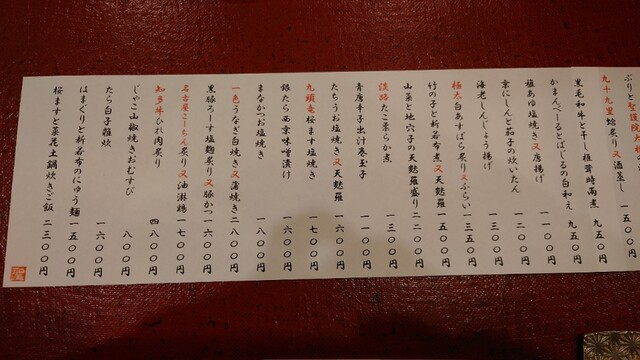 ぶりと聖護院大根
九十九里蛤炙り又酒蒸し 一五〇〇円
黒毛和牛と干し椎茸時雨煮 九五〇円
かまんべーるとばじるの白和え 九五〇円
稚あゆ塩焼き又唐揚げ 一一〇〇円
京にしんと茄子の炊いたん 一二〇〇円
海老しんじょう揚げ 一一〇〇円
極太白あすぱら炙り又ふらい 一三五〇円
竹の子と新若布煮又天麩羅 一五〇〇円
山菜と地穴子の天麩羅盛り 二二〇〇円
淡路たこ柔らか煮 一三〇〇円
青唐辛子出汁巻玉子 一一〇〇円
たちうお塩焼き又天麩羅 一六〇〇円
九頭竜桜ます塩焼き 一七〇〇円
銀たら西京味噌漬け 一六〇〇円
まなかつお塩焼き 一八〇〇円
一色うなぎ白焼き又蒲焼き 二八〇〇円
黒豚ろーす塩麹炙り又豚かつ 一六〇〇円
名古屋こーちん炙り又油淋鶏 一七〇〇円
知多牛ひれ肉炙り 四八〇〇円
じゃこ山椒焼きおむすび 八〇〇円
たら白子雑炊 一六〇〇円
はまぐりと新若布のにゅう麺 一五〇〇円
桜ますと菜花土鍋炊きご飯 二三〇〇円